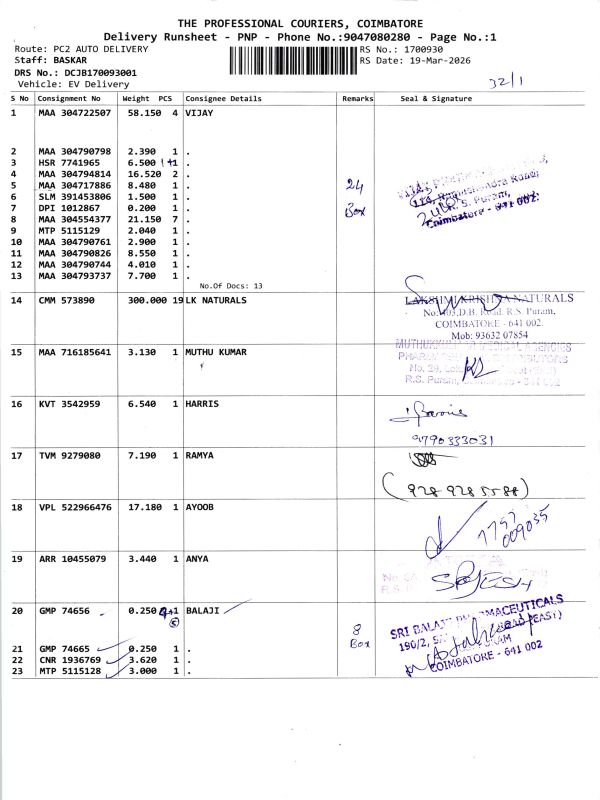 THE PROFESSIONAL COURIERS, COIMBATORE
Delivery Runsheet - PNP - Phone No.:9047080280 - Page No.:1
Route: PC2 AUTO DELIVERY
RS No.: 1700930
Staff: BASKAR
RS Date: 19-Mar-2026
DRS No.: DCJB170093001
Vehicle: EV Delivery
32/1
S No Consignment No Weight PCS Consignee Details Remarks Seal & Signature
1 MAA 304722507 58.150 4 VIJAY
2 MAA 304790798 2.390 1 .
3 HSR 7741965 6.500 1 .
4 MAA 304794814 16.520 2 .
5 MAA 304717886 8.480 1 . 24
6 SLM 391453806 1.500 1 .
7 DPI 1012867 0.200 1 . Box
8 MAA 304554377 21.150 7 . Coimbatore - 641 002.
9 MTP 5115129 2.040 1 .
10 MAA 304790761 2.900 1 .
11 MAA 304790826 8.550 1 .
12 MAA 304790744 4.010 1 .
13 MAA 304793737 7.700 1 .
No.Of Docs: 13
14 CMM 573890 300.000 19 LK NATURALS
LAKSHMI KRISHNA NATURALS
D.B. Road. R.S. Puram,
COIMBATORE - 641 002.
Mob: 93632 07854
15 MAA 716185641 3.130 1 MUTHU KUMAR
R.S. Puram,
16 KVT 3542959 6.540 1 HARRIS
9790333031
17 TVM 9279080 7.190 1 RAMYA
(928 928 5588)
18 VPL 522966476 17.180 1 AYOOB
19 ARR 10455079 3.440 1 ANYA
20 GMP 74656 0.250 1 BALAJI
SRI BALAJI PHARMACEUTICALS
8
Box
190/2,
ROAD (EAST)
COIMBATORE - 641 002
21 GMP 74665 0.250 1 .
22 CNR 1936769 3.620 1 .
23 MTP 5115128 3.000 1 .